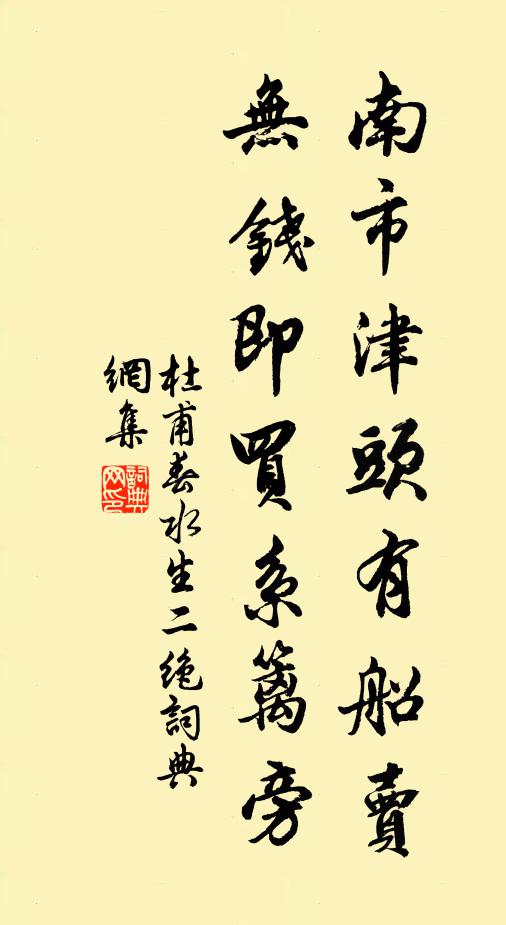 南市津頭有船賣
無錢即買系籬旁
杜甫春水生二绝詞典
網集
詞典網印